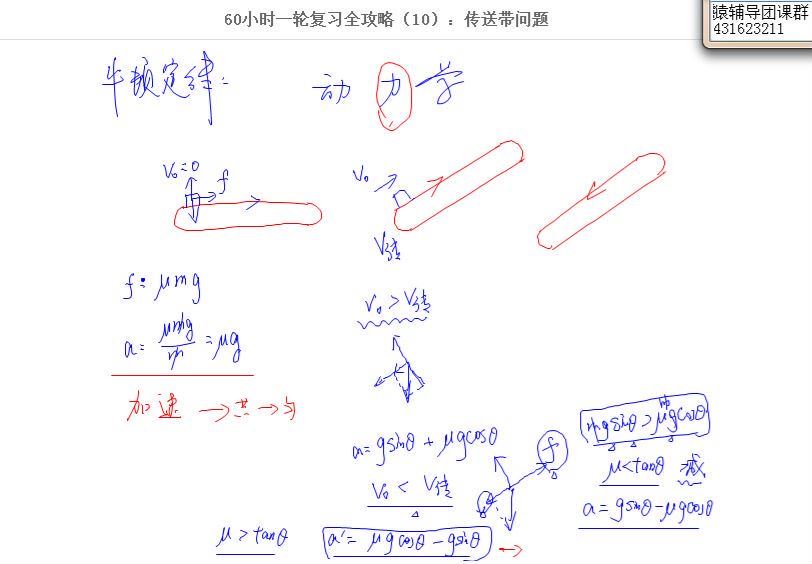 60小时一轮复习全攻略（10）：传送带问题
猿辅导团课群
431623211
牛顿定律: 动 力 学
V₀=0
f
V₀
V传
f=μmg
a=μmg/m=μg
加速→共→匀
V₀>V传
a=gsinθ+μgcosθ
V₀<V传
f
mgsinθ>μmgcosθ
μ<tanθ 减
a=gsinθ-μgcosθ
μ>tanθ
a'=μgcosθ-gsinθ→